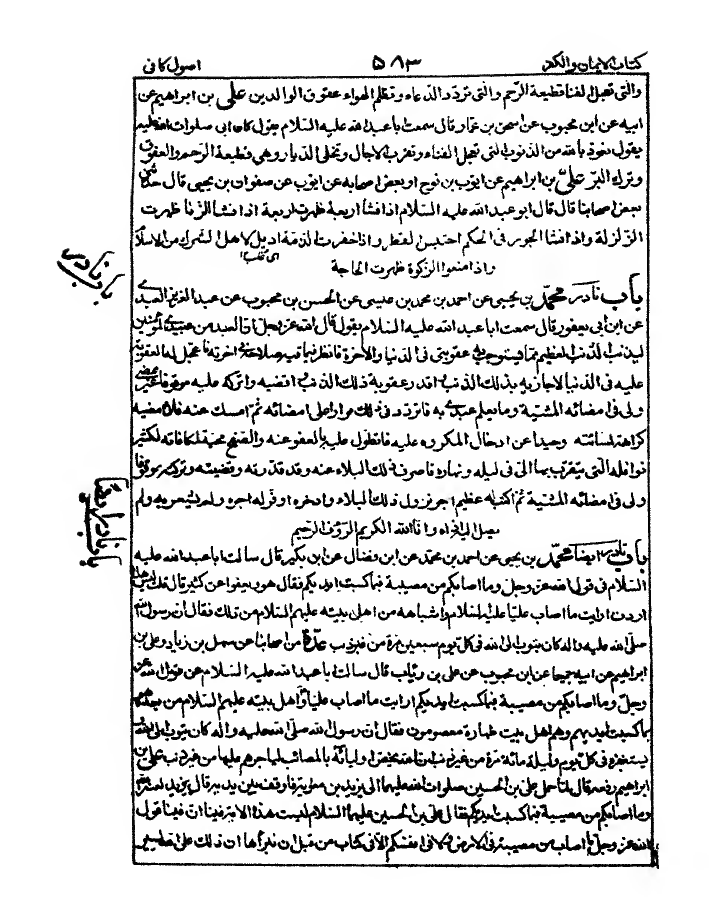 كتاب الايمان والكفر ٥٨٣ اصول كافى
والتى تعجل الفناء قطيعة الرحم والتى ترد الدعاء وتظلم الهواء عقوق الوالدين على بن ابراهيم عن
ابيه عن ابن محبوب عن اسحق بن عمار قال سمعت ابا عبد الله عليه السلام يقول كان ابى صلوات الله عليه
يقول نعوذ بالله من الذنوب التى تعجل الفناء وتقرب الاجال وتخلى الديار وهى قطيعة الرحم والعقوق
وترك البر على بن ابراهيم عن ايوب بن نوح او بعض اصحابه عن ايوب عن صفوان بن يحيى قال حدثنى
بعض اصحابنا قال قال ابو عبد الله عليه السلام اذا فشا اربعة ظهرت اربعة اذا فشا الزنا ظهرت
الزلزلة واذا فشا الجور فى الحكم احتبس القطر واذا خفرت الذمة اديل لاهل الشرك من الاسلام
واذا منعوا الزكوة ظهرت الحاجة
باب نادر
باب نادر محمد بن يحيى عن احمد بن محمد بن عيسى عن الحسن بن محبوب عن عبد العزيز العبدى
عن ابن ابى يعفور قال سمعت ابا عبد الله عليه السلام يقول قال الله عز وجل ان العبد من عبيدى المؤمنين
ليذنب الذنب العظيم مما يستوجب به عقوبتى فى الدنيا والاخرة فانظر له فيما فيه صلاحه فى اخرته فاعجل له العقوبة
عليه فى الدنيا لاجازيه بذلك الذنب اقدر عقوبة ذلك الذنب واقضيه واتركه عليه موقوفا غير ممضى
ولى فى امضائه المشية وما يعلم عبدى به فاتردد فى ذلك مرارا على امضائه ثم امسك عنه فلا امضيه
كراهة لمسائته وحيدا عن ادخال المكروه عليه فاتطول عليه بالعفو عنه والصفح محبة لمكافاته لكثير
نوافله التى يتقرب بها الى فى ليله ونهاره فاصرف ذلك البلاء عنه وقد قدرته وقضيته وتركته موقوفا
ولى فى امضائه المشية ثم اكتب له عظيم اجر نزول ذلك البلاء وادخره واوفر له اجره ولم يشعر به ولم
يصل اليه اذاه وانا الله الكريم الرؤف الرحيم
باب نادر ايضا
باب نادر ايضا محمد بن يحيى عن احمد بن محمد عن ابن فضال عن ابن بكير قال سالت ابا عبد الله عليه
السلام فى قول الله عز وجل وما اصابكم من مصيبة فبما كسبت ايديكم فقال هو ويعفوا عن كثير قال قلت ليس هذا
اردت ارايت ما اصاب عليا عليه السلام واشباهه من اهل بيته عليهم السلام من ذلك فقال ان رسول الله
صلى الله عليه واله كان يتوب الى الله فى كل يوم سبعين مرة من غير ذنب عدة من اصحابنا عن سهل بن زياد وعلى بن
ابراهيم عن ابيه جميعا عن ابن محبوب عن على بن رئاب قال سالت ابا عبد الله عليه السلام عن قول الله عز
وجل وما اصابكم من مصيبة فبما كسبت ايديكم ارايت ما اصاب عليا واهل بيته عليهم السلام من بعده هو
بما كسبت ايديهم وهم اهل بيت طهارة معصومون فقال ان رسول الله صلى الله عليه واله كان يتوب الى الله
ويستغفره فى كل يوم وليلة مائة مرة من غير ذنب ان الله يخص اوليائه بالمصائب لياجرهم عليها من غير ذنب على بن
ابراهيم رفعه قال لما حمل على بن الحسين صلوات الله عليهما الى يزيد بن معوية فاوقف بين يديه قال يزيد لعنه الله
وما اصابكم من مصيبة فبما كسبت ايديكم فقال على بن الحسين عليهما السلام ليست هذه الاية فينا ان فينا قول
الله عز وجل ما اصاب من مصيبة فى الارض ولا فى انفسكم الا فى كتاب من قبل ان نبرأها ان ذلك على الله يسير